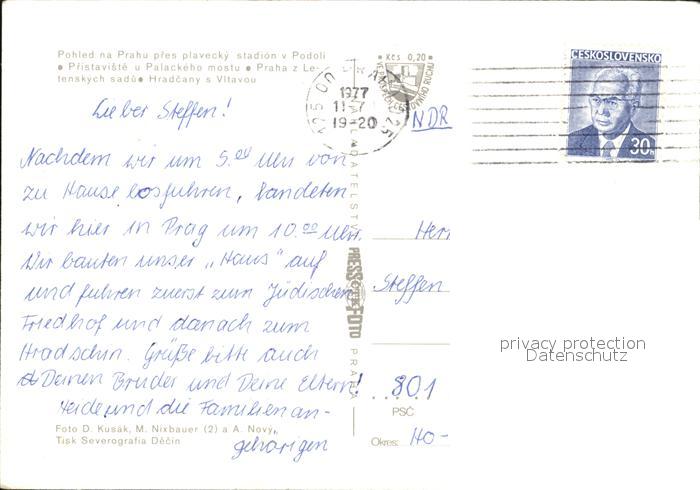 Pohled na Prahu přes plavecký stadión v Podolí
● Přístaviště u Palackého mostu ● Praha z Le-
tenských sadů ● Hradčany s Vltavou
Kčs 0,20
ČESKOSLOVENSKO
30h
1977
11. 7
19-20
025
NDR
Lieber Steffen!
Nachdem wir um 5.00 Uhr von
zu Hause losfuhren, landeten
wir hier in Prag um 10.00 Uhr.
Wir bauten unser „Haus" auf
und fuhren zuerst zum Jüdischen
Friedhof und danach zum
Hradschin. Grüße bitte auch
Deinen Bruder und Deine Eltern!
Heide und die Familienan-
gehörigen
Herr
Steffen
801
PSČ
Okres: HO-
PRESSFOTO
PRAHA
Foto D. Kusák, M. Nixbauer (2) a A. Nový,
Tisk Severografia Děčín
privacy protection
Datenschutz